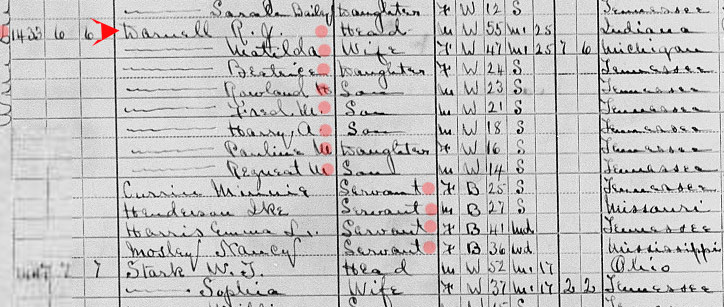 Sarah Bailey Daughter F W 12 S Tennessee
1433 6 6 Darnell R. J. Head M W 55 M1 25 Indiana
Matilda Wife F W 47 M1 25 7 6 Michigan
Beatrice Daughter F W 24 S Tennessee
Rowland H Son M W 23 S Tennessee
Fred M. Son M W 21 S Tennessee
Harry A. Son M W 18 S Tennessee
Pauline M Daughter F W 16 S Tennessee
M Son M W 14 S Tennessee
Currin Minnie Servant F B 25 S Tennessee
Henderson Ike Servant M B 27 S Missouri
Harris Emma L. Servant F B 41 Wd Tennessee
Mosley Nancy Servant F B 36 Wd Mississippi
7 7 Stark W. J. Head M W 52 M1 17 Ohio
Sophia Wife F W 37 M1 17 2 2 Tennessee